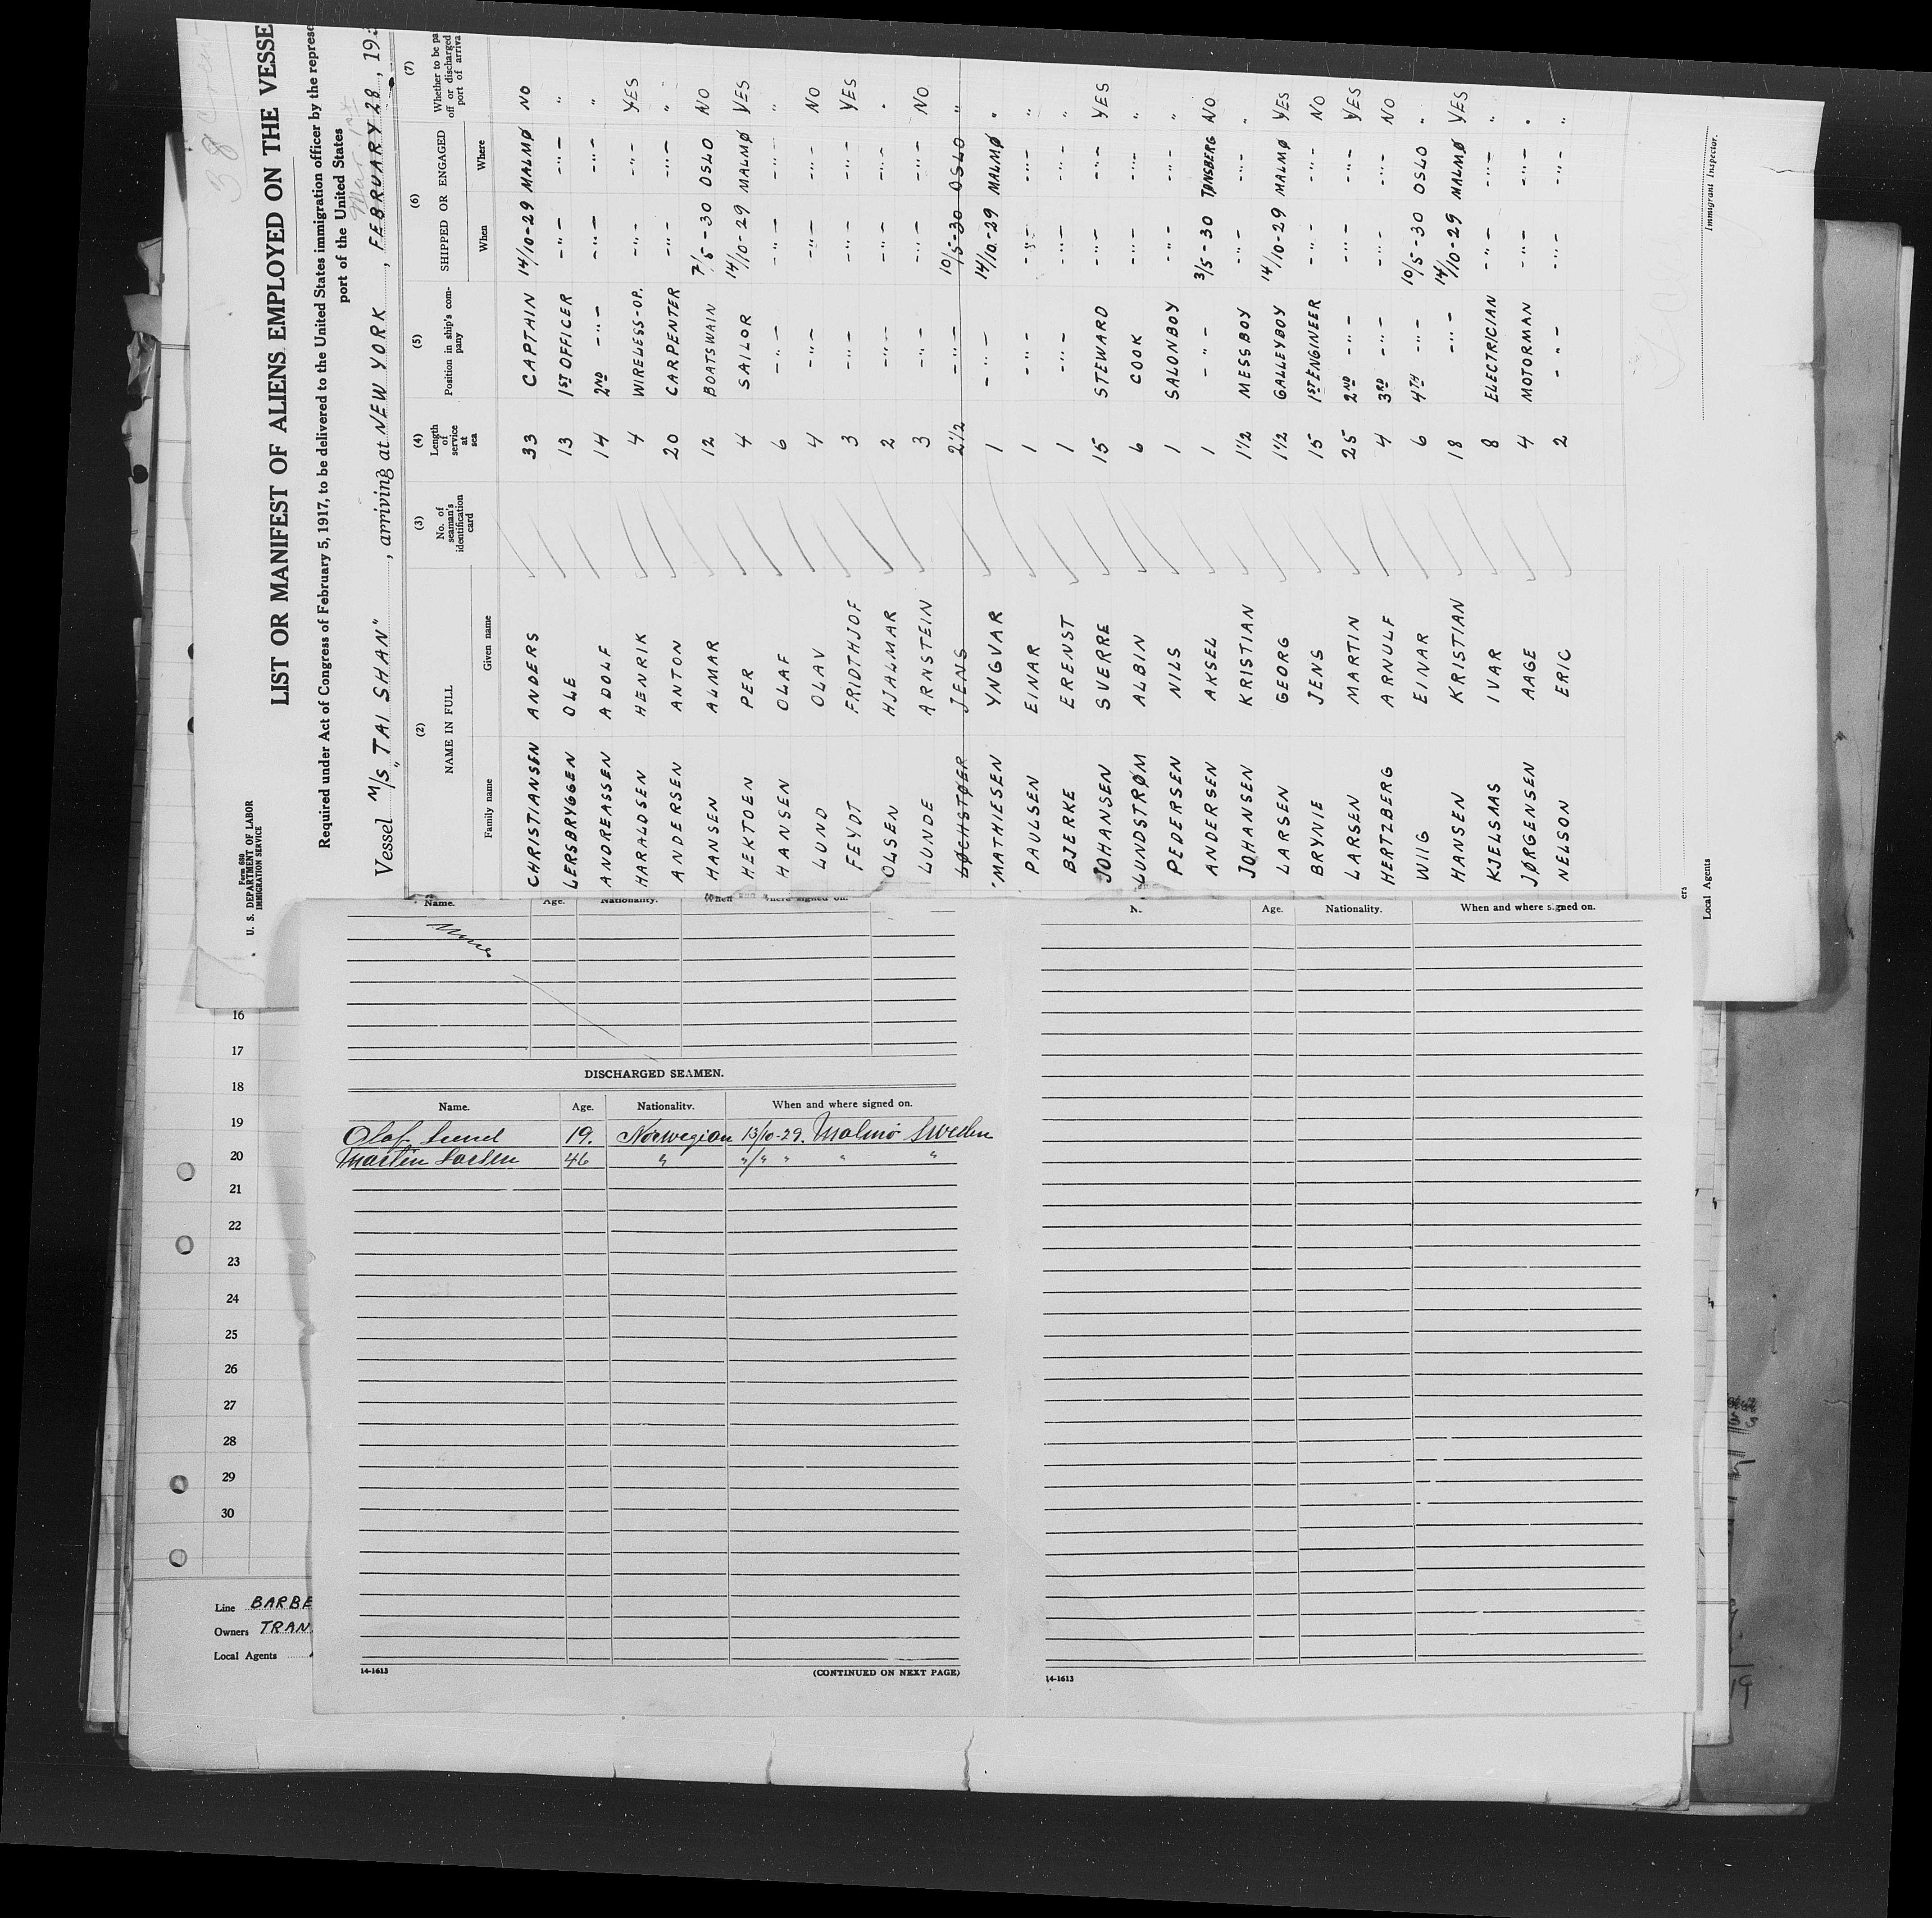 38 Crew
Form 680
U. S. DEPARTMENT OF LABOR
IMMIGRATION SERVICE
LIST OR MANIFEST OF ALIENS EMPLOYED ON THE VESSE
Required under Act of Congress of February 5, 1917, to be delivered to the United States immigration officer by the represe
port of the United States
Mar. 1st
Vessel M/S "TAI SHAN" , arriving at NEW YORK , FEBRUARY 28, 19
(2) (3) (4) (5) (6) (7)
NAME IN FULL No. of seaman's identification card Length of service at sea Position in ship's com-pany SHIPPED OR ENGAGED Whether to be pa off or discharged port of arriva
Family name Given name When Where
CHRISTIANSEN ANDERS 33 CAPTAIN 14/10-29 MALMØ NO
LERSBRYGGEN OLE 13 1ST OFFICER -"- -"- "
ANDREASSEN ADOLF 14 2ND -"- -"- -"- "
HARALDSEN HENRIK 4 WIRELESS-OP. -"- -"- YES
ANDERSEN ANTON 20 CARPENTER -"- -"- "
HANSEN ALMAR 12 BOATSWAIN 7/5-30 OSLO NO
HEKTOEN PER 4 SAILOR 14/10-29 MALMØ YES
HANSEN OLAF 6 -"- -"- -"- "
LUND OLAV 4 -"- -"- -"- NO
FEYDT FRIDTHJOF 3 -"- -"- -"- YES
OLSEN HJALMAR 2 -"- -"- -"- "
LUNDE ARNSTEIN 3 -"- -"- -"- NO
BØCHSTØER JENS 2 1/2 -"- 10/5-30 OSLO "
MATHIESEN YNGVAR 1 -"- 14/10-29 MALMØ "
PAULSEN EINAR 1 -"- -"- -"- "
BJERKE ERENST 1 -"- -"- -"- "
JOHANSEN SVERRE 15 STEWARD -"- -"- YES
LUNDSTRØM ALBIN 6 COOK -"- -"- "
PEDERSEN NILS 1 SALONBOY -"- -"- "
ANDERSEN AKSEL 1 -"- 3/5-30 TØNSBERG NO
JOHANSEN KRISTIAN 1 1/2 MESSBOY -"- -"- "
LARSEN GEORG 1 1/2 GALLEYBOY 14/10-29 MALMØ YES
BRYNIE JENS 15 1ST ENGINEER -"- -"- NO
LARSEN MARTIN 25 2ND -"- -"- -"- YES
HERTZBERG ARNULF 4 3RD -"- -"- -"- NO
WIIG EINAR 6 4TH -"- 10/5-30 OSLO "
HANSEN KRISTIAN 18 -"- 14/10-29 MALMØ YES
KJELSAAS IVAR 8 ELECTRICIAN -"- -"- "
JØRGENSEN AAGE 4 MOTORMAN -"- -"- "
NELSON ERIC 2 -"- -"- -"- "
ers
Local Agents
Immigrant Inspector.
Name. Age. Nationality. When where signed on.
None
DISCHARGED SEAMEN.
Name. Age. Nationality. When and where signed on.
Olaf Lund 19. Norwegian 13/10-29. Malmö Sweden
Martin Larsen 46 " "/" " " "
14-1613
(CONTINUED ON NEXT PAGE)
N. Age. Nationality. When and where signed on.
14-1613
16
17
18
19
20
21
22
23
24
25
26
27
28
29
30
Line BARBE
Owners TRAN
Local Agents
19